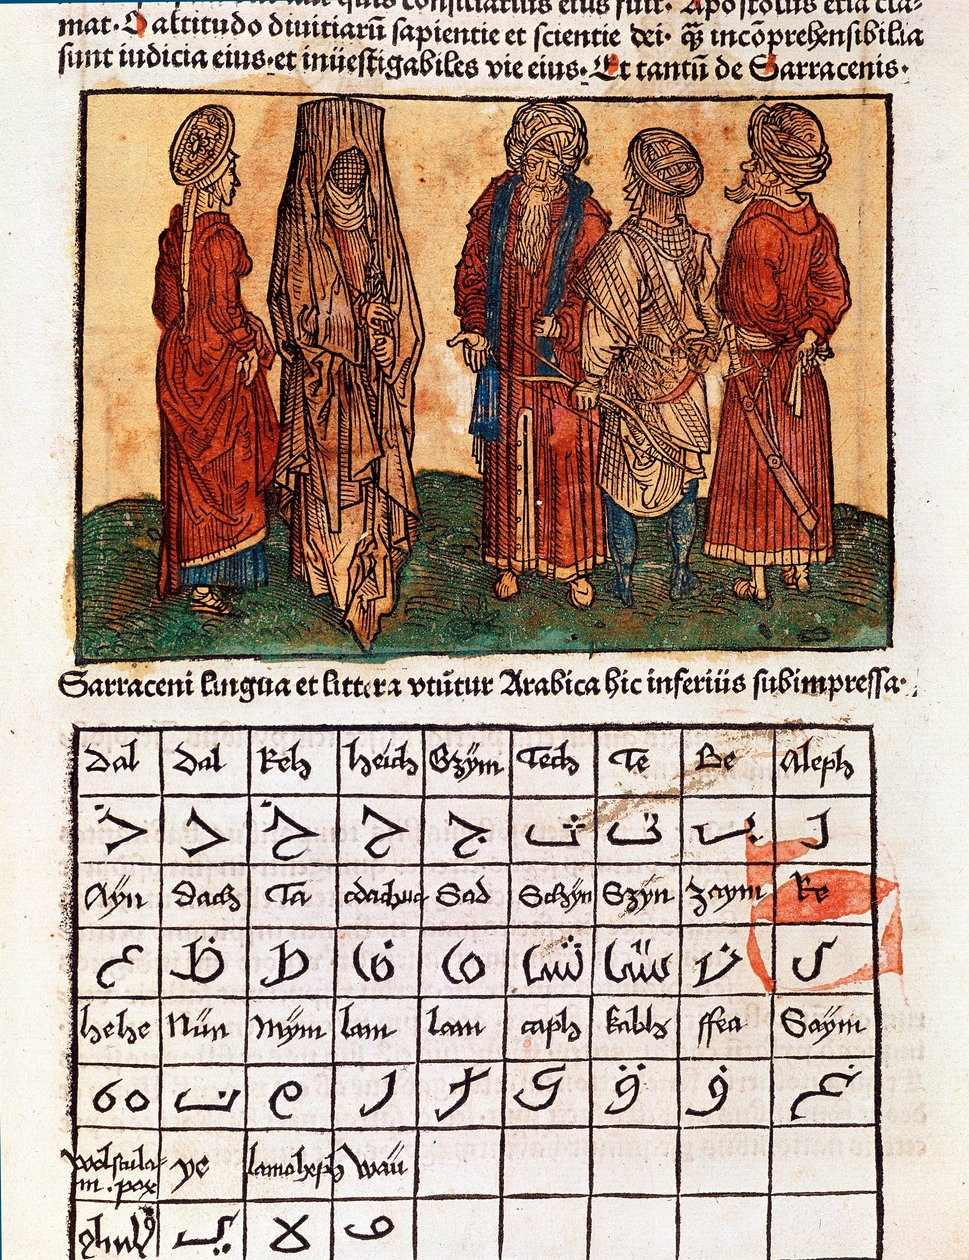 consiliarius eius fuit. Apostolus etiā cla-
mat. O altitudo diuitiarū sapientie et scientie dei. q̄ȝ incōprehensibilia
sunt iudicia eius. et inūestigabiles vie eius. Et tantū de Sarracenis.
Sarraceni lingua et littera vtūtur Arabica hic inferiūs subimpressa.
Dal Dal Reh heich Gzÿm Tech Te Be Aleph
ذ د خ ح ج ث ت ب ا
Aÿn Dach Ta Sad Schÿn Szÿn Zaym Re
ع ظ ط ض ص ش س ز ر
hehe Nūn Mÿm lam lam caph kabh ffea Saÿm
ه ن م ل ك ق ف غ
ye lamoleph wāū
ي لا و